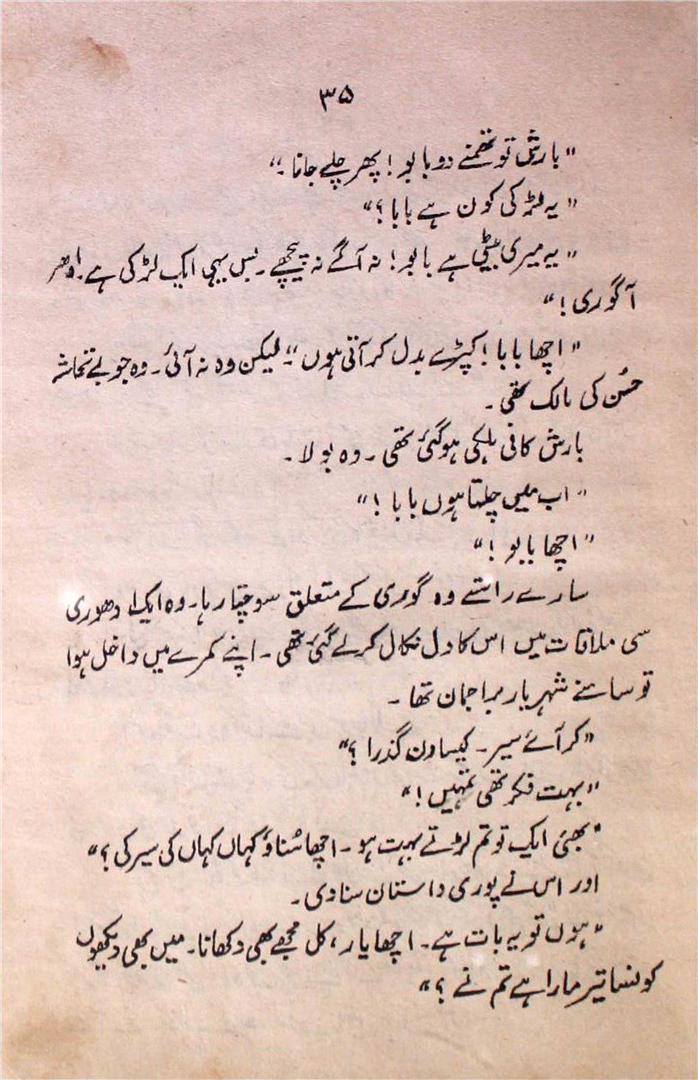 ۳۵
"بارش تو تھمنے دو بابو! پھر چلے جانا۔"
"یہ لڑکی کون ہے بابا؟"
"یہ میری بیٹی ہے بابو! نہ آگے نہ پیچھے۔ بس یہی ایک لڑکی ہے۔ ادھر
آ گوری!"
"اچھا بابا! کپڑے بدل کر آتی ہوں"؛ لیکن وہ نہ آئی۔ وہ جو بے تحاشہ
حُسن کی مالک تھی۔
بارش کافی ہلکی ہو گئی تھی۔ وہ بولا۔
"اب میں چلتا ہوں بابا!"
"اچھا بابو!"
سارے راستے وہ گوری کے متعلق سوچتا رہا۔ وہ ایک ادھوری
سی ملاقات میں اس کا دل نکال کر لے گئی تھی۔ اپنے کمرے میں داخل ہوا
تو سامنے شہریار براجمان تھا۔
"کر آئے سیر۔ کیسا دن گذرا؟"
"بہت فکر تھی تمہیں!"
"بھئی ایک تو تم لڑتے بہت ہو۔ اچھا سُناؤ کہاں کہاں کی سیر کی؟"
اور اس نے پوری داستان سنا دی۔
"ہوں تو یہ بات ہے۔ اچھا یار، کل مجھے بھی دکھانا۔ میں بھی دیکھوں
کونسا تیر مارا ہے تم نے؟"